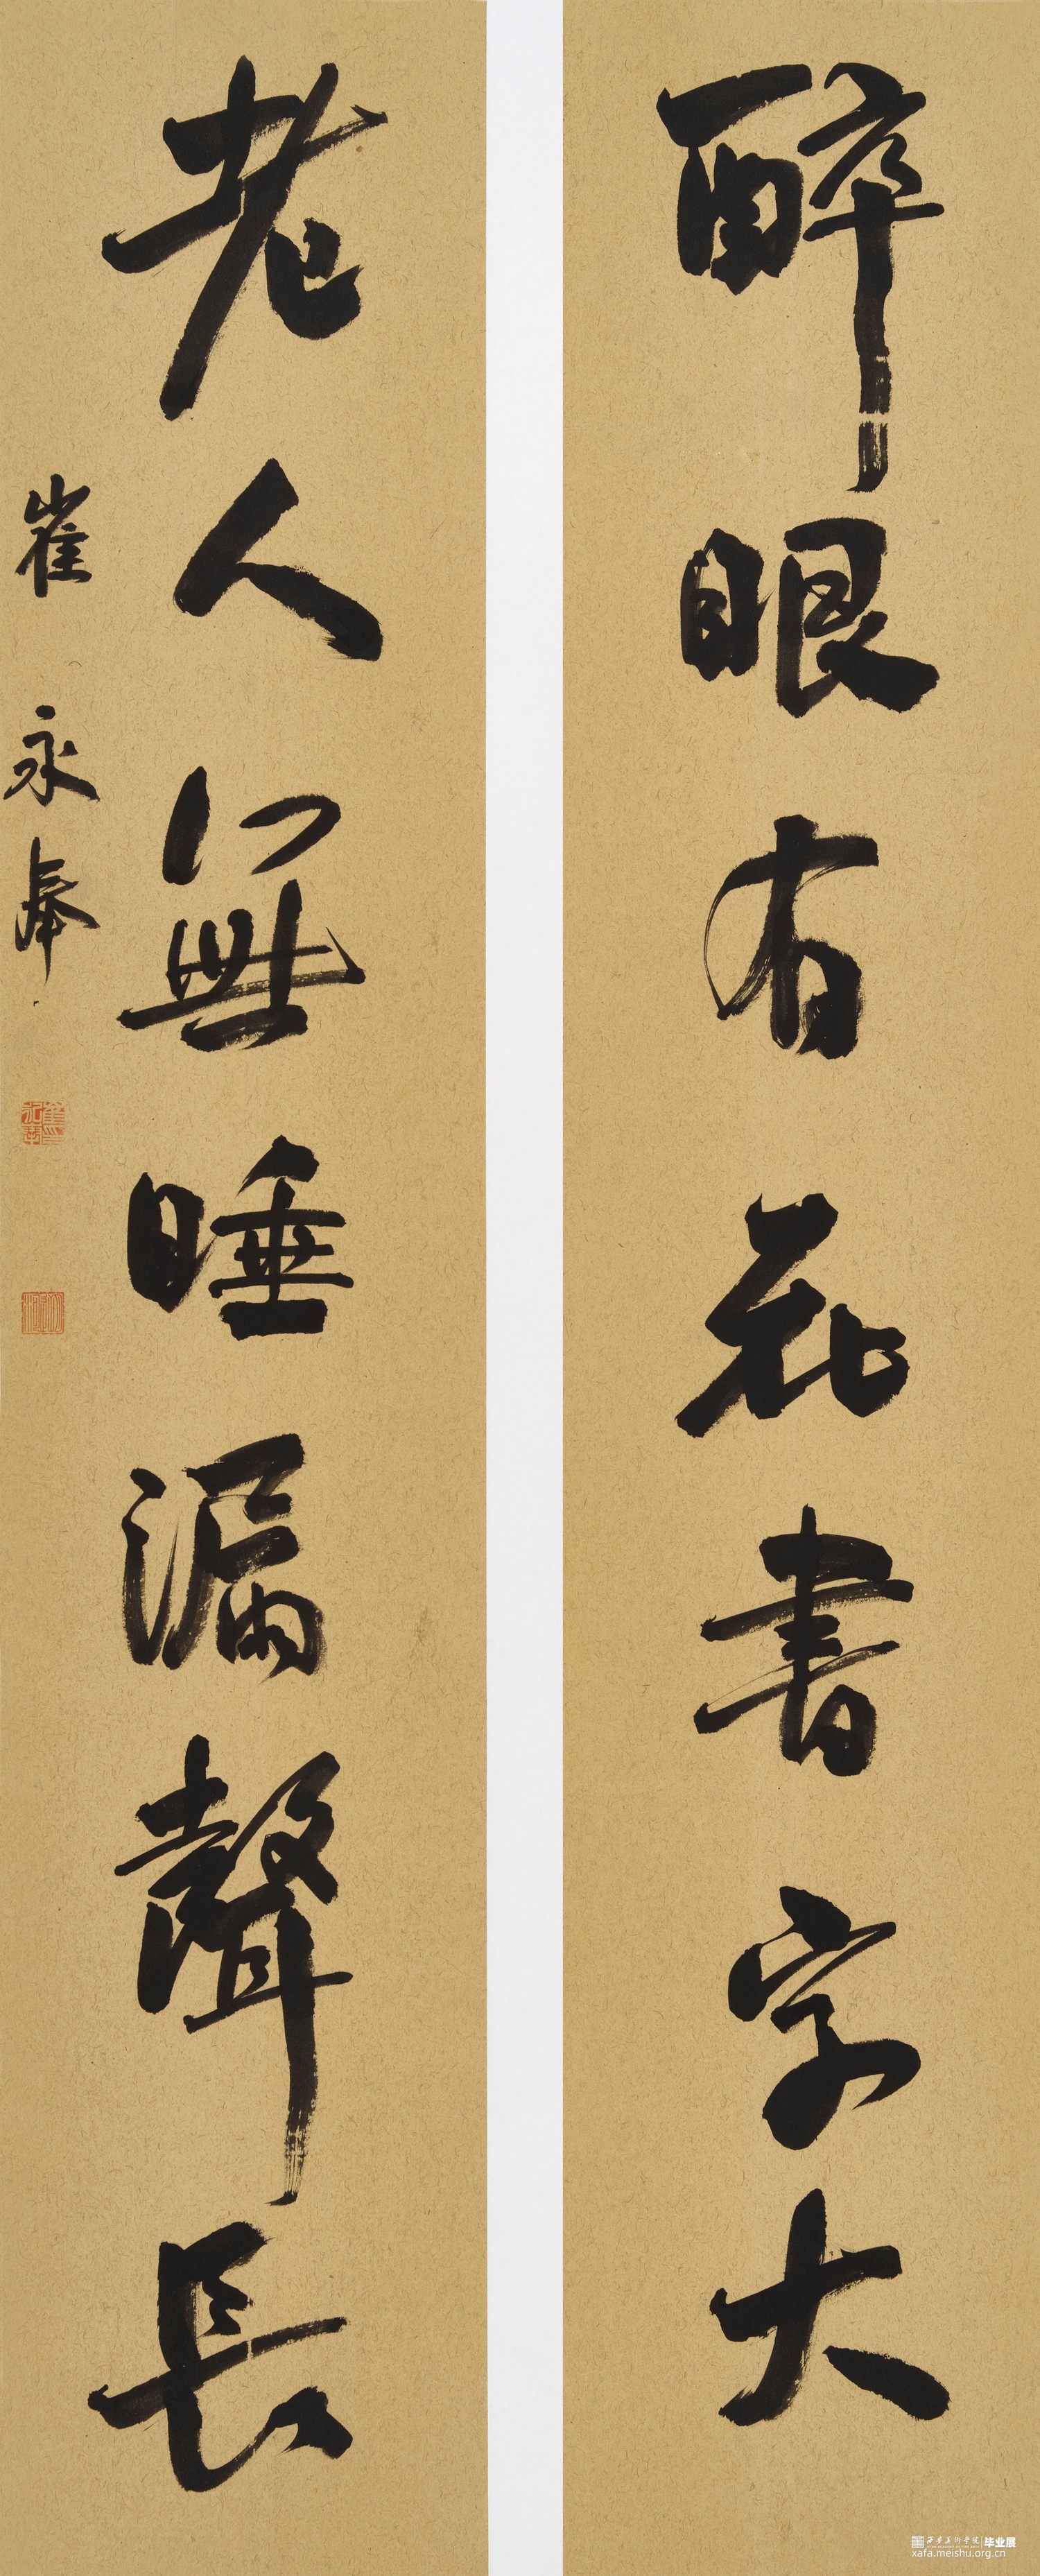 醉眼有花書字大
老人無睡漏聲長
崔永奉
西安美術學院 毕业展
xafa.meishu.org.cn